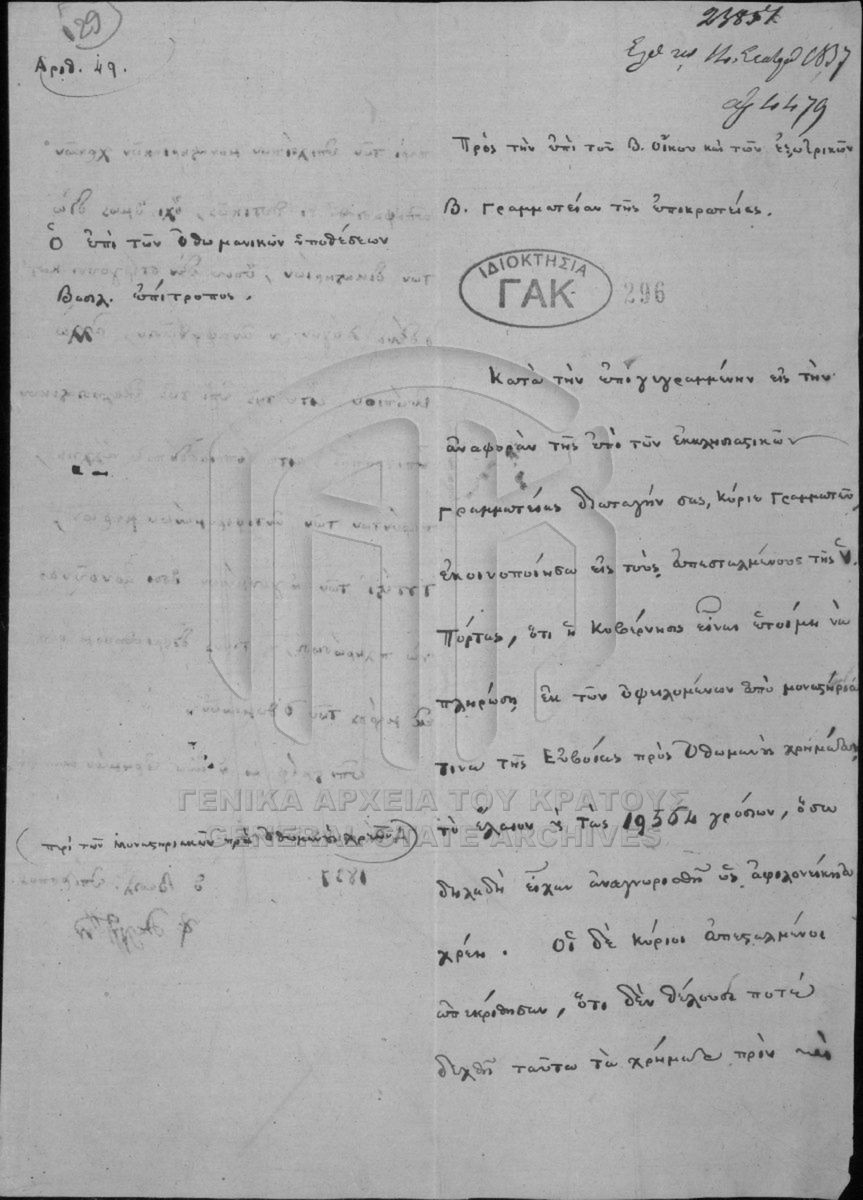 29
Αριθ. 49.
23851
1837
4479
Πρὸς τὴν ἐπὶ τοῦ Β. Οἴκου καὶ τῶν ἐξωτερικῶν
Β. Γραμματείαν τῆς ἐπικρατείας.
Ὁ ἐπὶ τῶν Ὀθωμανικῶν ὑποθέσεων
Βασιλ. ἐπίτροπος.
ΙΔΙΟΚΤΗΣΙΑ
ΓΑΚ
296
Κατὰ τὴν ὑπογεγραμμένην εἰς τὴν
ἀναφορὰν τῆς ἐπὶ τῶν ἐκκλησιαστικῶν
γραμματείας διαταγήν σας, Κύριε Γραμματεῦ,
ἐκοινοποίησα εἰς τοὺς ἀπεσταλμένους τῆς Ὑ.
Πόρτας, ὅτι ἡ Κυβέρνησις εἶναι ἑτοίμη νὰ
πληρώσῃ ἐκ τῶν ὀφειλομένων ἀπὸ μοναστήριά
τινα τῆς Εὐβοίας πρὸς Ὀθωμανοὺς χρημάτων
τὸ ἔλαιον ἢ τὰς 19364 γρόσων, ὅσα
δηλαδὴ εἶχαν ἀναγνωρισθῆ ὡς ἀφιλονείκητα
χρέη. Οἱ δὲ Κύριοι ἀπεσταλμένοι
ἀπεκρίθησαν, ὅτι δὲν θέλουσι ποτὲ
δεχθῆ ταῦτα τὰ χρήματα πρὶν
ΓΕΝΙΚΑ ΑΡΧΕΙΑ ΤΟΥ ΚΡΑΤΟΥΣ
GENERAL STATE ARCHIVES
περὶ τῶν Μοναστηριακῶν πρὸς Ὀθωμανοὺς χρεῶν